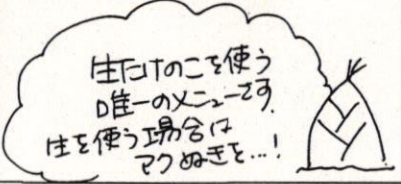 生たけのこを使う
唯一のメニューです。
生を使う場合は
アクぬきを…!